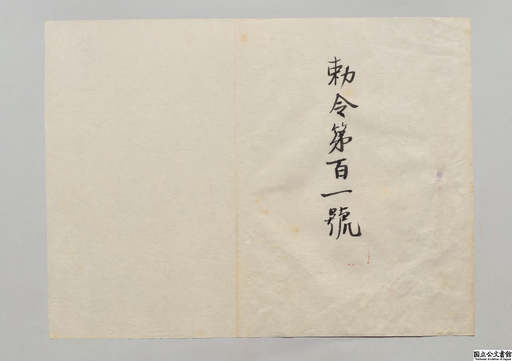 勅令第百一號
国立公文書館
National Archives of Japan